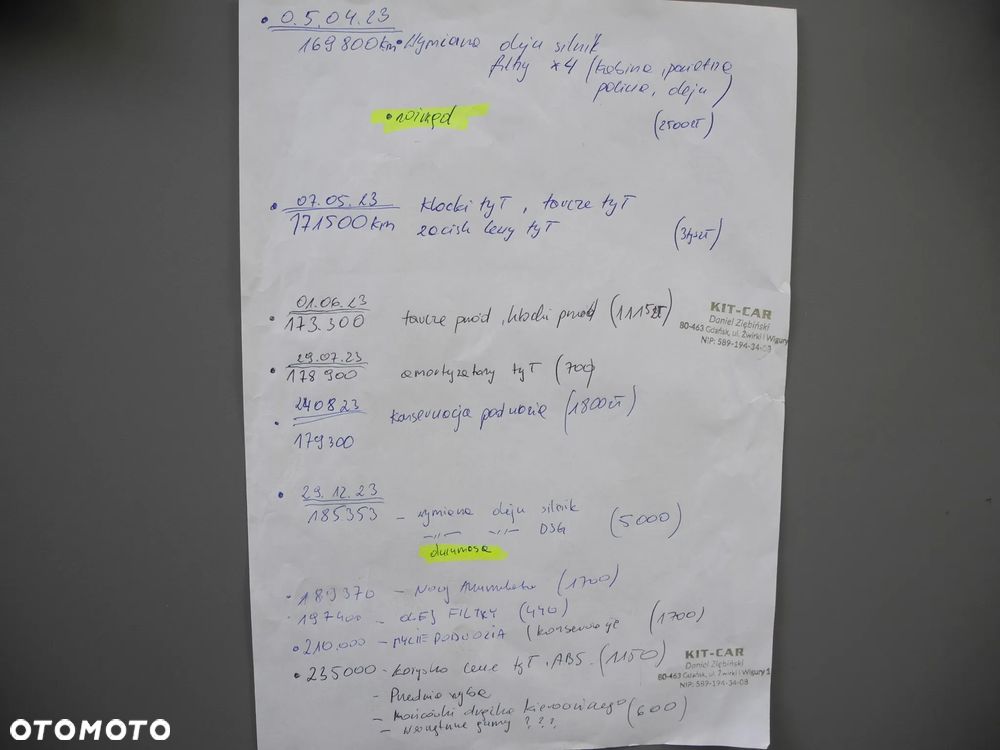 • 05.04.23
169800km • Wymiana oleju silnik
filtry x4 (kabina, powietrze
paliwa, oleju)
• rozrząd
(2500zł)
• 07.05.23
171500km
klocki tył, tarcze tył
zacisk lewy tył
(3tyszł)
• 01.06.23
173.300
tarcze przód, klocki przód (1115zł)
KIT-CAR
Daniel Ziębiński
80-463 Gdańsk, ul. Żwirki i Wigury
NIP: 589-194-34-03
• 29.07.23
178900
amortyzatory tył (700)
• 240823
179300
konserwacja podwozia (1800zł)
• 29.12.23
185353 - wymiana oleju silnik
-〃- -〃- DSG
(5000)
dwumasa
• 189370 - Nowy Akumulator (1700)
• 197400 - OLEJ FILTRY (440)
• 210.000 - MYCIE PODWOZIA (konserwacje (1700)
• 235000 - łożysko lewe tył, ABS. (1150)
- Przednia szyba
- Końcówki drążka kierowniczego (600)
- gumy ???
KIT-CAR
Daniel Ziębiński
80-463 Gdańsk, ul. Żwirki i Wigury 1
NIP: 589-194-34-03
OTOMOTO